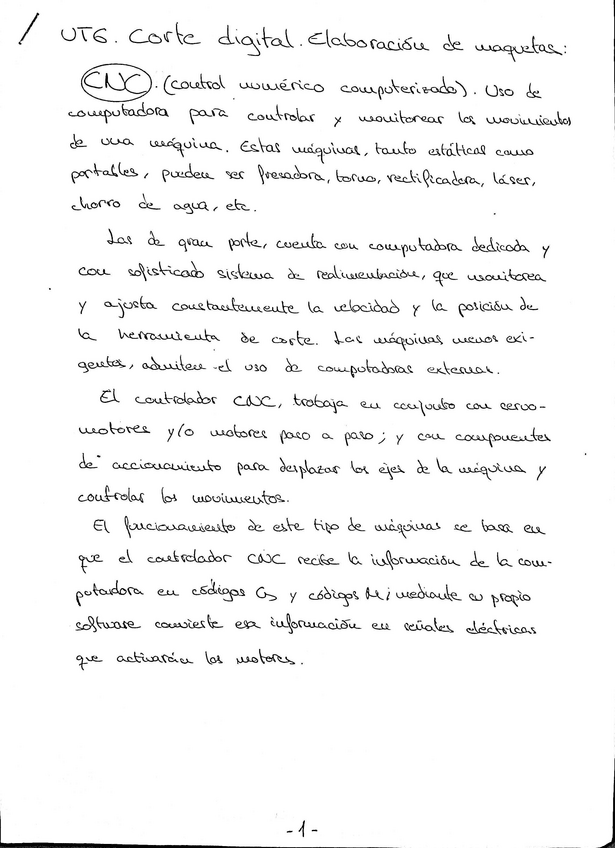 UT6. Corte digital. Elaboración de maquetas:
CNC. (control numérico computerizado). Uso de
computadora para controlar y monitorear los movimientos
de una máquina. Estas máquinas, tanto estáticas como
portables, pueden ser fresadora, torno, rectificadora, láser,
chorro de agua, etc.
Las de gran porte, cuenta con computadora dedicada y
con sofisticado sistema de realimentación, que monitorea
y ajusta constantemente la velocidad y la posición de
la herramienta de corte. Las máquinas menos exi-
gentes, admiten el uso de computadoras externas.
El controlador CNC, trabaja en conjunto con servo-
motores y/o motores paso a paso; y con componentes
de accionamiento para desplazar los ejes de la máquina y
controlar los movimientos.
El funcionamiento de este tipo de máquinas se basa en
que el controlador CNC recibe la información de la com-
putadora en códigos G y códigos M; mediante su propio
software convierte esa información en señales eléctricas
que activarán los motores.
-1-